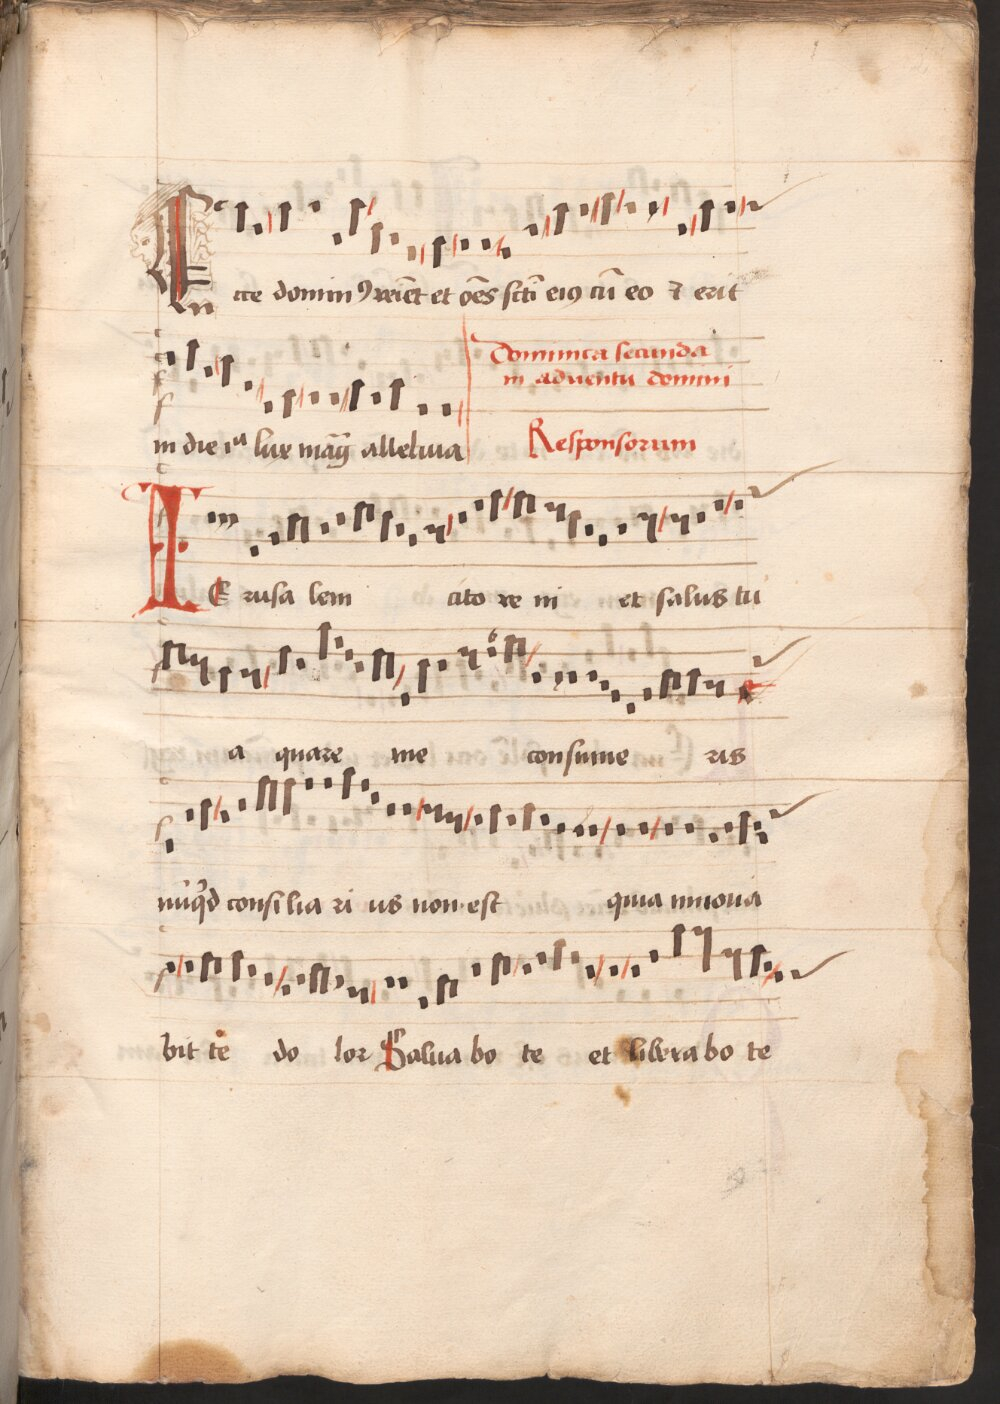 Ecce domin⁹ veiēt et oēs sctī ei⁹ cū eo ⁊ erit
in die illa lux mag̃ alleluia
Dominica secunda
in aduentu domini
Responsorium
IE rusa lem cito ve ni et salus tu
a quare me consume ris
nūqd consilia ri us non est quia innoua
bit te do lor Salua bo te et libera bo te